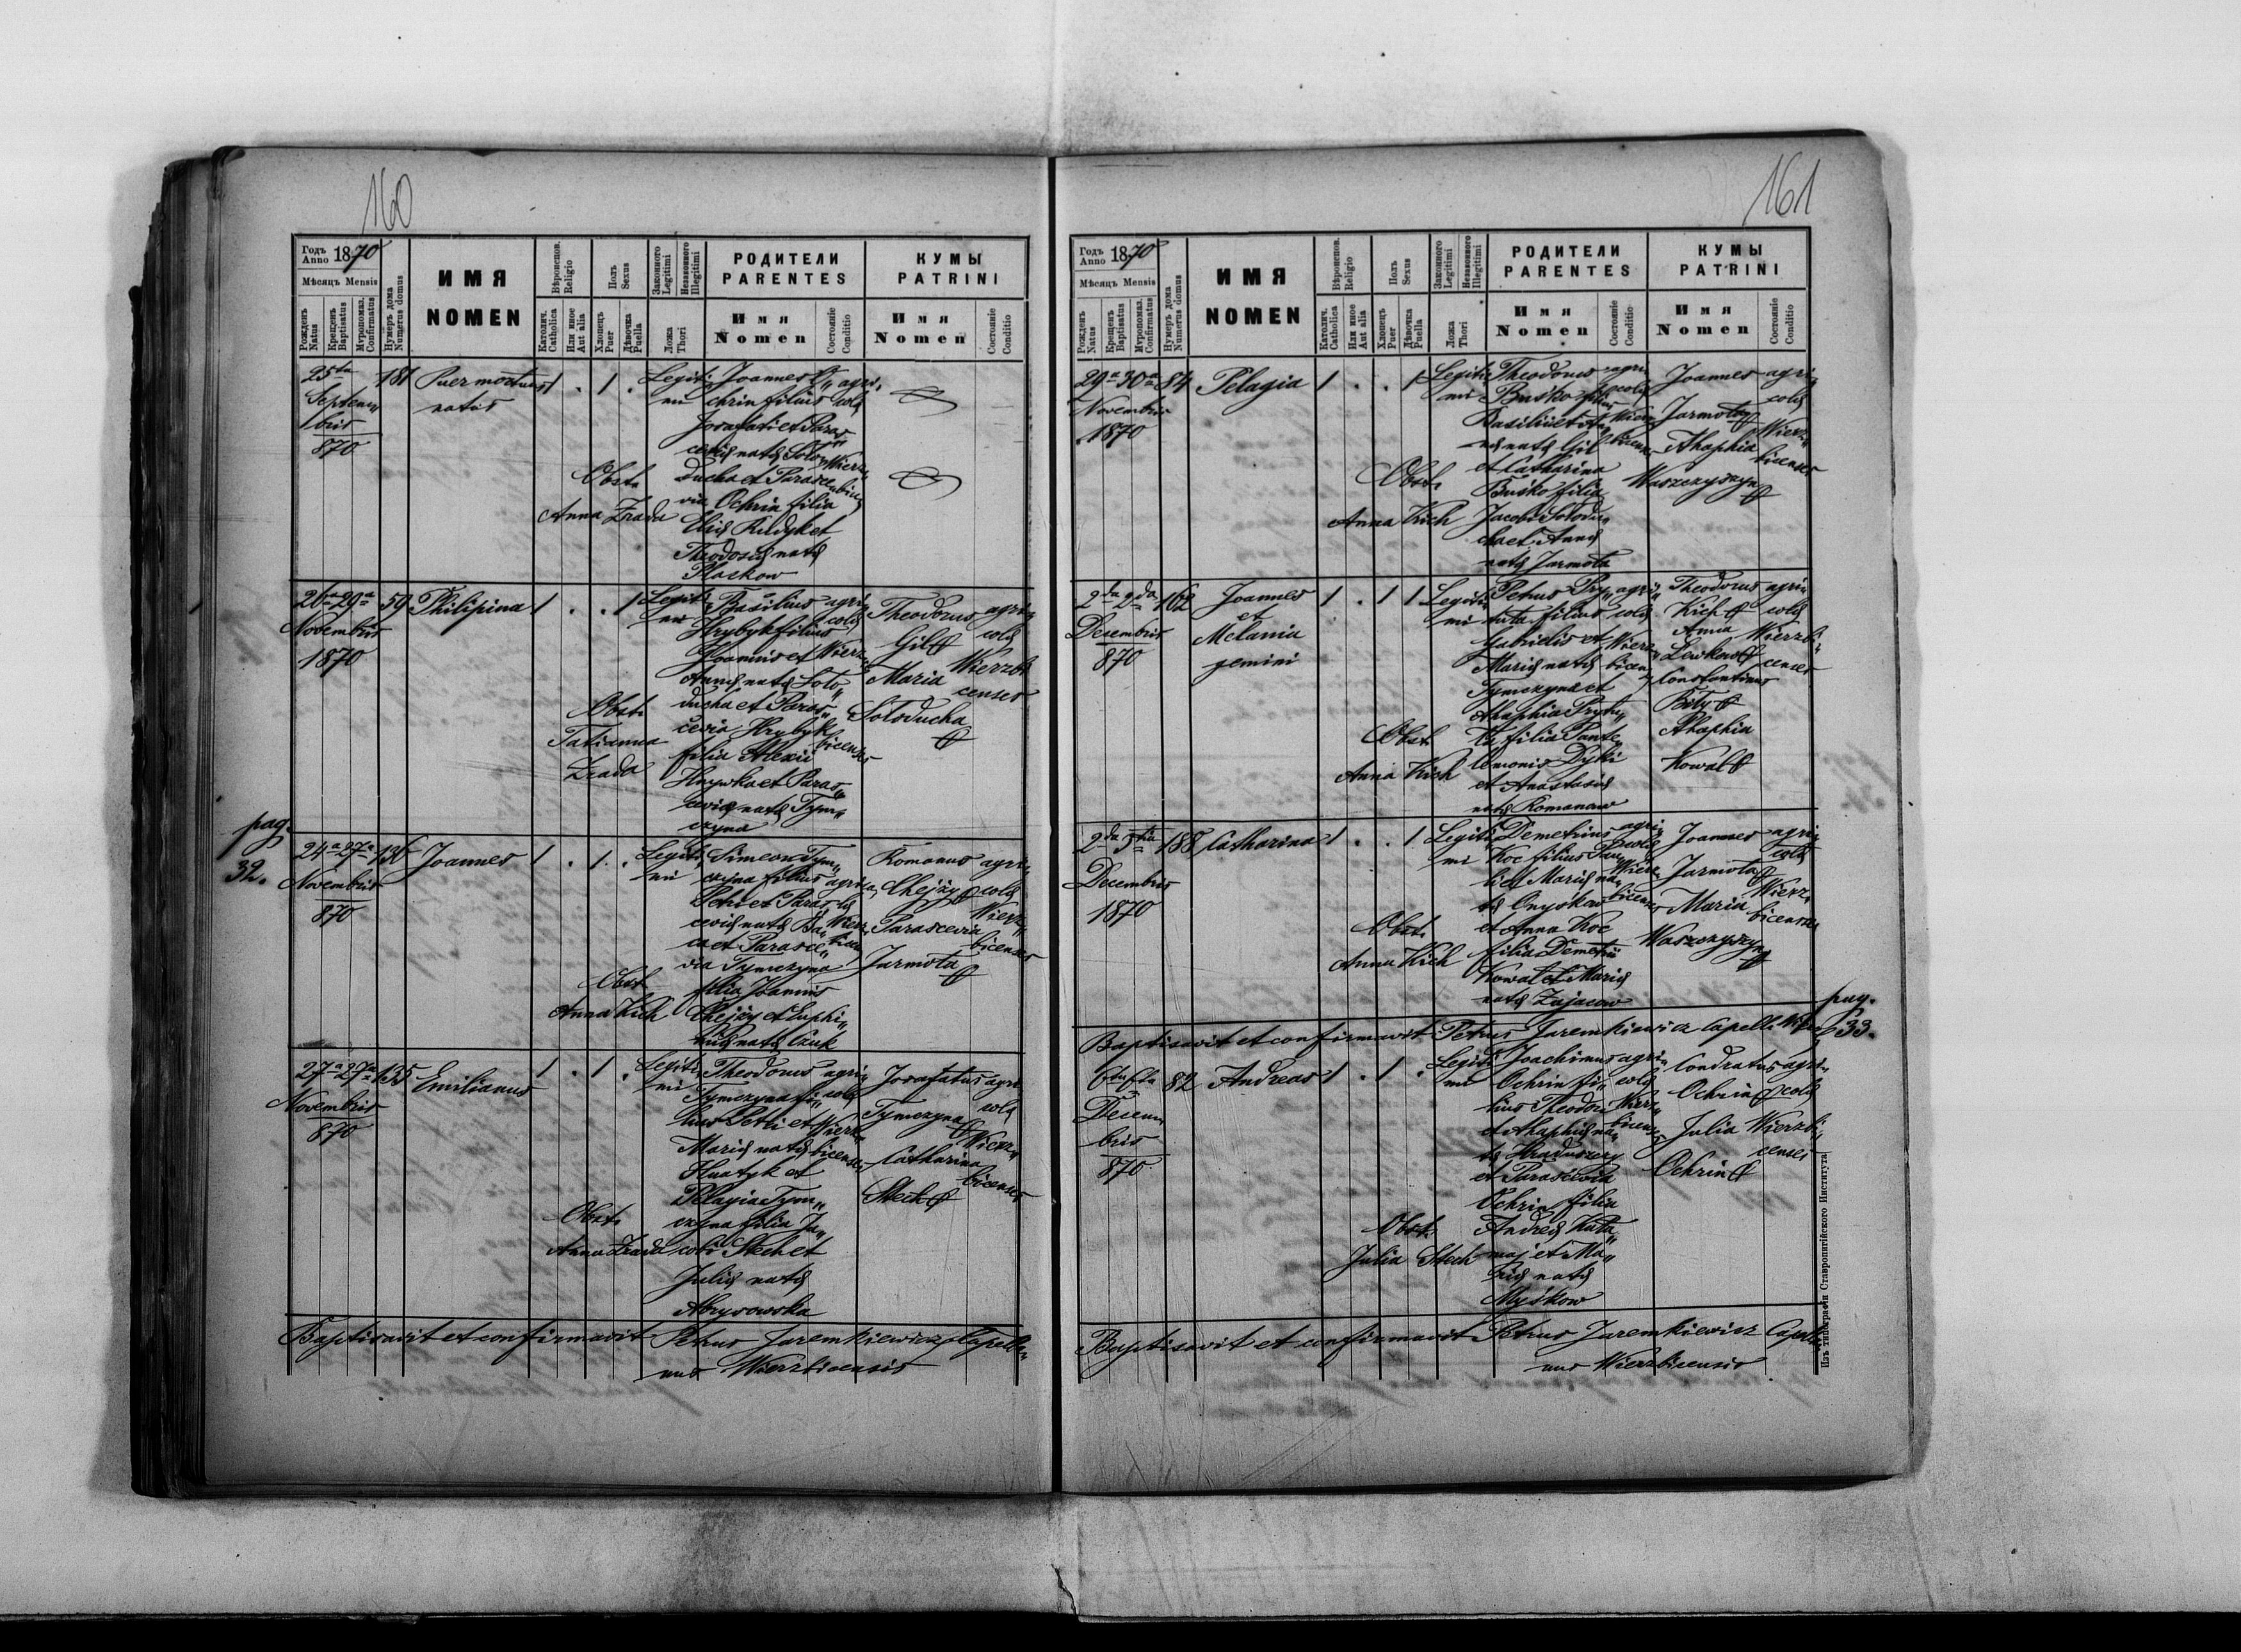 160
Годъ
Anno 1870
Мѣсяцъ Mensis
Рожденъ
Natus
Крещенъ
Baptisatus
Мѵропомаз.
Confirmatus
Нумеръ дома
Numerus domus
ИМЯ
NOMEN
Вѣроиспов.
Religio
Католич.
Catholica
Или иное
Aut alia
Полъ
Sexus
Хлопецъ
Puer
Дѣвочка
Puella
Законного
Legitimi
Незаконного
Illegitimi
Ложа
Thori
РОДИТЕЛИ
PARENTES
Имя
Nomen
Состояніе
Conditio
КУМЫ
PATRINI
Имя
Nomen
Состояніе
Conditio
25ta
Septem„
bris
870
181
Puer mortuus
natus
1 . 1 .
Legiti„
mi
Joannes O„
chrin filius
Josafati et Paras„
cevię natę Soło„
ducha et Parasce„
via Ochrin filia
Elię Rudyk et
Theodosię natę
Płaskow
agri„
colę
Wierz„
Obst.
Anna Zrada
26a 29a
Novembris
1870
59
Philipina
1 . . 1
Legiti„
mi
Basilius
Hrybyk filius
Joannis et
Annę natę Soło„
ducha et Paras„
cevia Hrybyk
filia Alexii
Hnywka et Paras„
cevię natę Tym„
czyna
agri„
colę
Wierz„
bicenses
Theodorus
Gil
Maria
Sołoducha
agri„
colę
Wierzbi„
censes
Obst.
Tatianna
Zrada
pag.
32.
24a 27a
Novembris
870
136
Joannes
1 . 1 .
Legiti„
mi
Simeon Tym„
czyna filius
Petri et Paras„
cevię natę Ba„
ca et Parasce„
via Tymczyna
filia Joannis
Chejzy et Euphi„
mię natę Czuk
agri„
colę
Wierz„
Romanus
Chejzy
Parascevia
Jarmoła
agri„
colę
Wierz„
bicenses
Obst.
Anna Kich
27a 27a
Novembris
870
135
Emilianus
1 . 1 .
Legiti„
mi
Theodorus
Tymczyna fi„
lius Petri et
Marię natę
Hnatyk et
Pelagia Tym„
czyna filia Ja„
cobi Stech et
Julię natę
Abrysowska
agri„
colę
Wierz„
bicenses
Josafatus
Tymczyna
Catharina
Stech
agri„
colę
Wierz„
bicenses
Obst.
Anna Zrada
Baptisavit et confirmavit Petrus Jaremkiewicz Capella„
nus Wierzbicensis
161
Годъ
Anno 1870
Мѣсяцъ Mensis
Рожденъ
Natus
Крещенъ
Baptisatus
Мѵропомаз.
Confirmatus
Нумеръ дома
Numerus domus
ИМЯ
NOMEN
Вѣроиспов.
Religio
Католич.
Catholica
Или иное
Aut alia
Полъ
Sexus
Хлопецъ
Puer
Дѣвочка
Puella
Законного
Legitimi
Незаконного
Illegitimi
Ложа
Thori
РОДИТЕЛИ
PARENTES
Имя
Nomen
Состояніе
Conditio
КУМЫ
PATRINI
Имя
Nomen
Состояніе
Conditio
29a 30a
Novembris
1870
84
Pelagia
1 . . 1
Legiti„
mi
Theodorus
Busko filius
Basilii et
natę Gil
et Catharina
Busko filia
Jacobi Sołodu„
cha et Annę
natę Jarmoła
agri„
colę
Wierz„
bicenses
Joannes
Jarmoła
Ahaphia
Waszczyszyn
agri„
colę
Wierz„
bicenses
Obst.
Anna Kich
2da 2da
Decembris
870
162
Joannes
et
Melania
gemini
1 . 1 1
Legiti„
mi
Petrus Pry„
tuła filius
Gabrielis et
Marię natę
Tymczyna et
Ahaphia Prytu„
ła filia Pante„
lemonis Dyki
et Anastasię
natę Romanow
agri„
colę
Wierz„
bicenses
Theodorus
Kich
Anna
Lewkow
Constantinus
Biły
Ahaphia
Kowal
agri„
colę
Wierzbi„
censes
Obst.
Anna Kich
2da 3tia
Decembris
1870
188
Catharina
1 . . 1
Legiti„
mi
Demetrius
Koc filius Pau„
li et Marię na„
tę Onyskow
et Anna Koc
filia Demetrii
Kowal et Marię
natę Zajacow
agri„
colę
Wierz„
bicenses
Joannes
Jarmoła
Maria
Waszczyszyn
agri„
colę
Wierz„
bicenses
Obst.
Anna Kich
Baptisavit et confirmavit Petrus Jaremkiewicz Capell.
pag.
33.
6ta 8ta
Decem„
bris
870
82
Andreas
1 . 1 .
Legiti„
mi
Joachimus
Ochrin fi„
lius Theodori
et Ahaphię na„
tę Hraduszczy
et Parascevia
Ochrin filia
Andreę Kuta„
maj et Ma„
rię natę
Myśkow
agri„
colę
Wierz„
bicenses
Condratus
Ochrin
Julia
Ochrin
agri„
colę
Wierzbi„
censes
Obst.
Julia Stech
Baptisavit et confirmavit Petrus Jaremkiewicz Capella„
nus Wierzbicensis
Изъ типографіи Ставропигійского Института